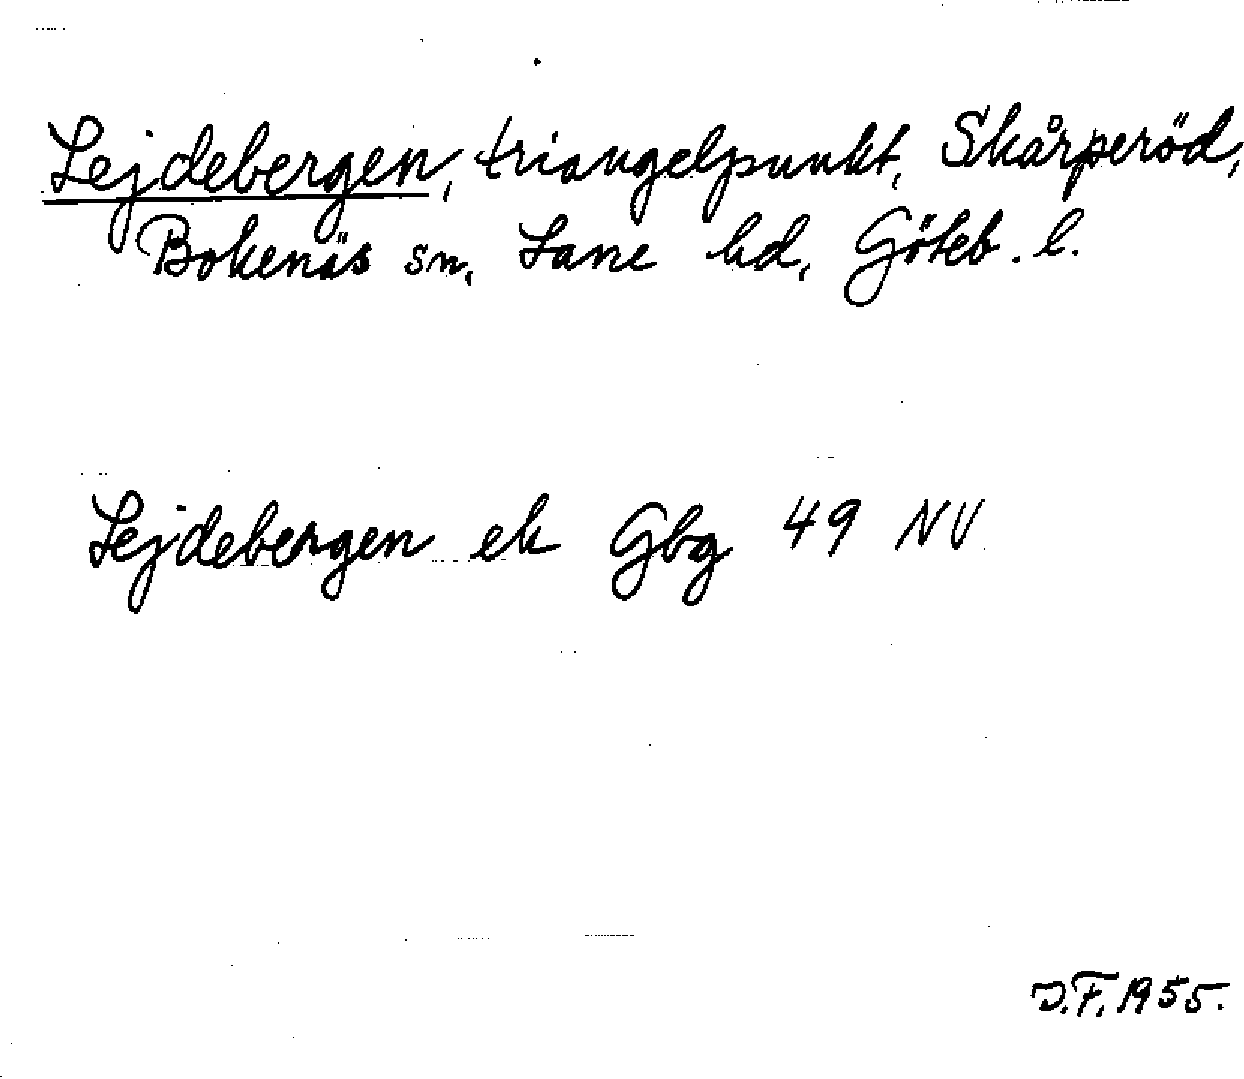 Lejdebergen, triangelpunkt, Skårperöd,
Bokenäs sn, Lane hd, Göteb. l.
Lejdebergen ek Gbg 49 NV
D.F. 1955.